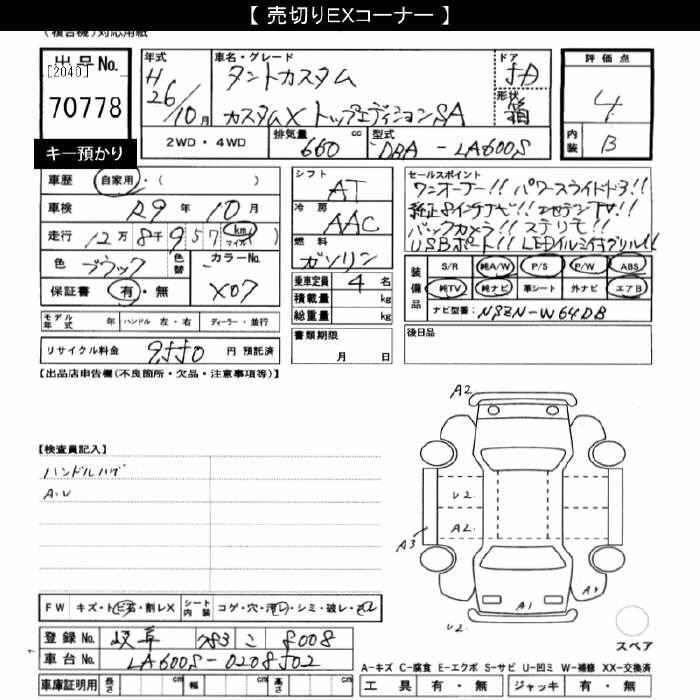 【 売切りEXコーナー 】
(複合機)対応用紙
出品No.
[2040]
70778
キー預かり
年式 H26/10月
車名・グレード タントカスタム
カスタムX トップエディションSA
ドア 5D
形状 箱
2WD・4WD 排気量 660 cc 型式 DBA - LA600S
評価点 4
内装 B
車歴 自家用・( )
車検 R9年 10月
走行 12万 8千 957 km マイル( )
色 ブラック 色替 カラーNo. X07
保証書 有・無
シフト AT
冷房 AAC
燃料 ガソリン
乗車定員 4 名
積載量 kg
総重量 kg
セールスポイント
ワンオーナー!! パワースライドドア!!
純正8インチナビ!! フルセグTV!!
バックカメラ!! ステリモ!!
USBポート!! LEDイルミ付グリル!!
装備品 S/R 純A/W P/S P/W ABS
純TV 純ナビ 革シート 外ナビ エアB
ナビ型番( NSZN-W64DB
モデル年式 年 ハンドル 左・右 ディーラー・並行
リサイクル料金 9,550 円 預託済
書類期限 月 日
後日品
【出品店申告欄(不良箇所・欠品・注意事項等)】
【検査員記入】
ハンドルハゲ
A.U
A2
U2.
A2.
A3
A1
U2.
スペア
FW キズ・ト石・割レX シート内装 コゲ・穴・汚レ・シミ・破レ・
登録No. 岐阜 583 こ 8008
車台No. LA600S-0208502
A-キズ C-腐食 E-エクボ S-サビ U-凹ミ W-補修 XX-交換済
車庫証明用 長さ cm 幅 cm 高さ cm
工具 有・無 ジャッキ 有・無